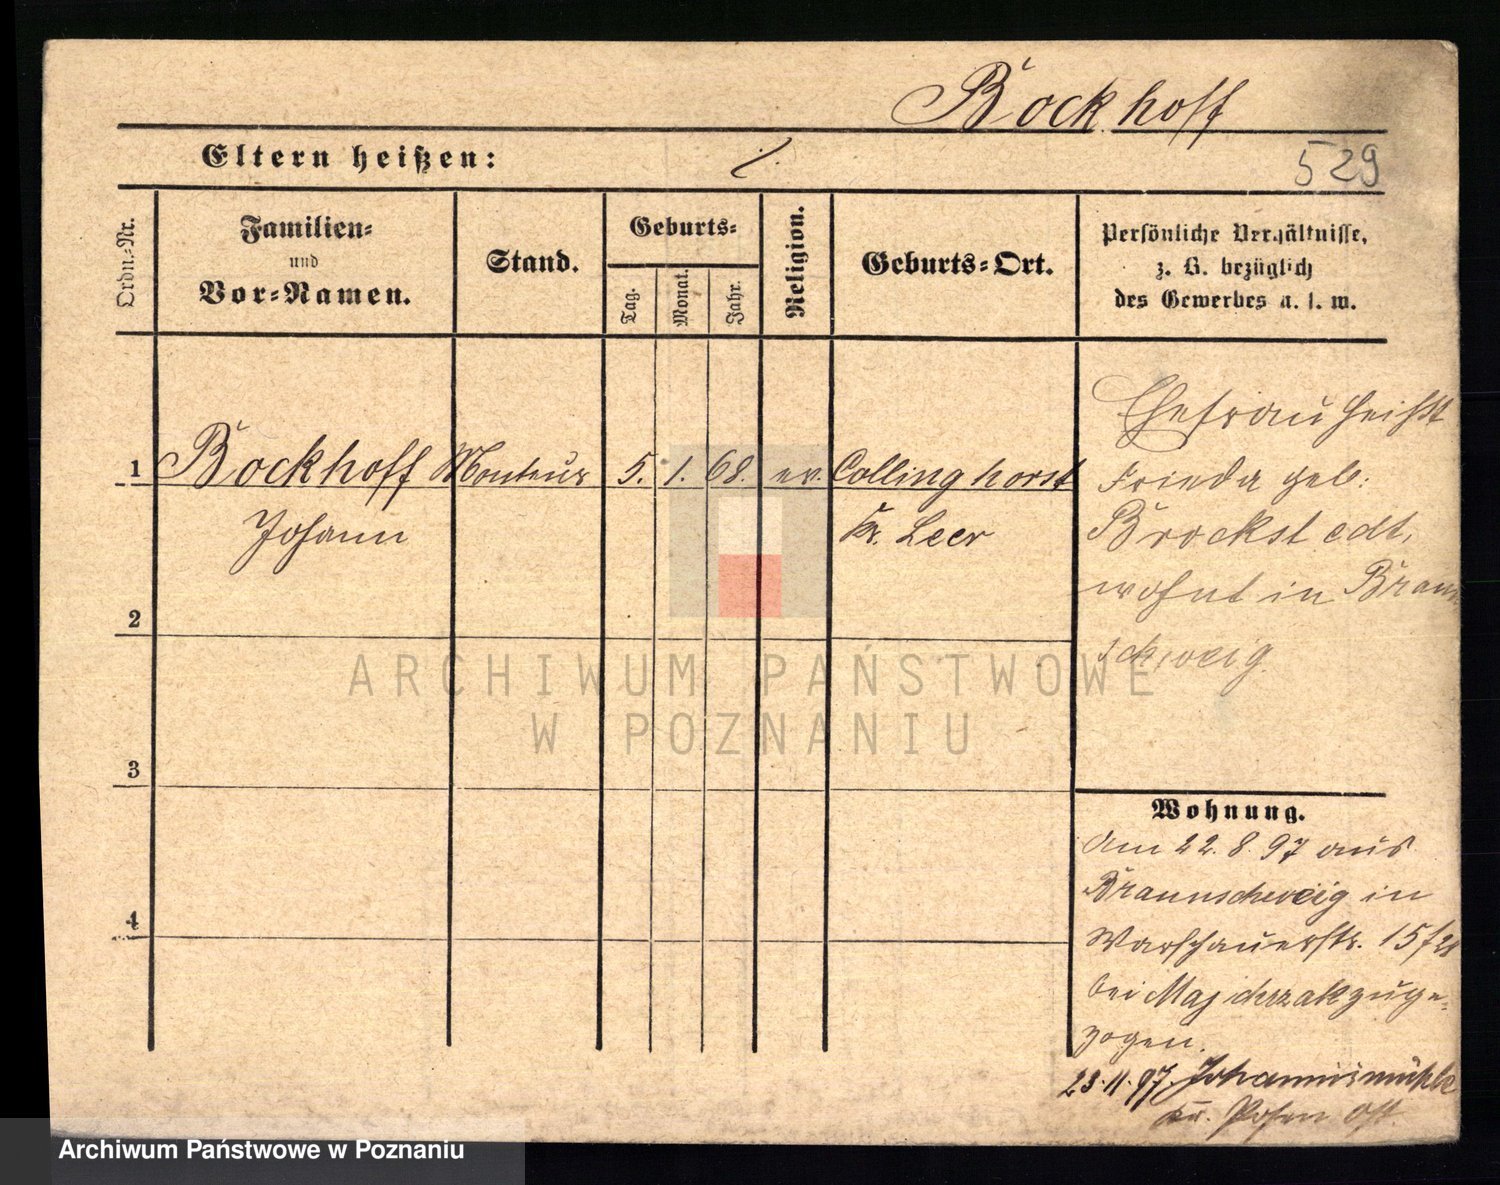 Bockhoff
Eltern heißen: ./.
529
Ordn.-Nr.
Familien-
und
Vor-Namen.
Stand.
Geburts-
Tag.
Monat.
Jahr.
Religion.
Geburts-Ort.
Persönliche Verhältnisse,
z. B. bezüglich
des Gewerbes u. s. w.
1 Bockhoff Monteur 5. 1. 68. ev. Collinghorst
Johann Kr. Leer
Ehefrau heißt
Frieda geb:
Brockstedt,
wohnt in Braun
schweig.
2
3
4
Wohnung.
Am 22. 8. 97 aus
Braunschweig in
Warschauerstr. 15
bei Majchrzak zuge-
zogen.
23.11.97. Johannismühle
Kr. Posen Ost.
ARCHIWUM PAŃSTWOWE
W POZNANIU
Archiwum Państwowe w Poznaniu